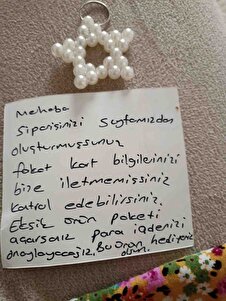 Merhaba
Siparişinizi Sayfamızdan
oluşturmuşsunuz
fakat kart bilgilerinizi
bize iletmemişsiniz
kontrol edebilirsiniz.
Eksik ürün paketi
açarsanız para iadenizi
onaylayacağız, Bu ürün hediyeniz
olsun.